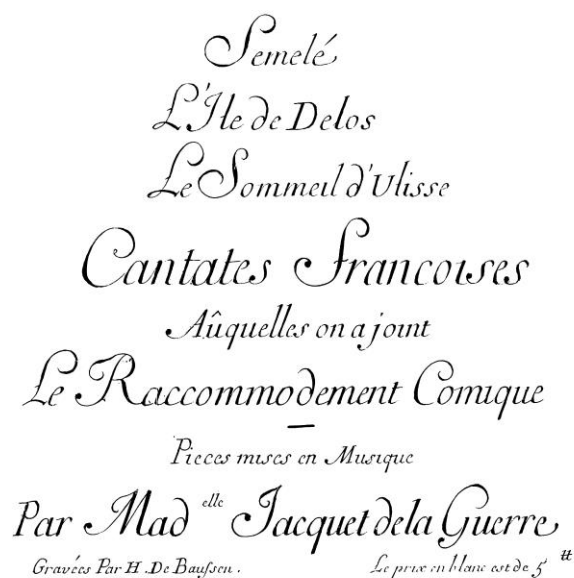 Semelé
L'Ile de Delos
Le Sommeil d'Ulisse
Cantates Francoises
Aûquelles on a joint
Le Raccommodement Comique
Pieces mises en Musique
Par Mad elle Jacquet de la Guerre
Gravées Par H. De Baussen. Le prix en blanc est de 5 tt